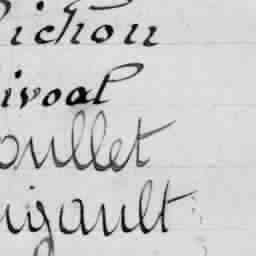 ichon
ivoal
oullet
igault